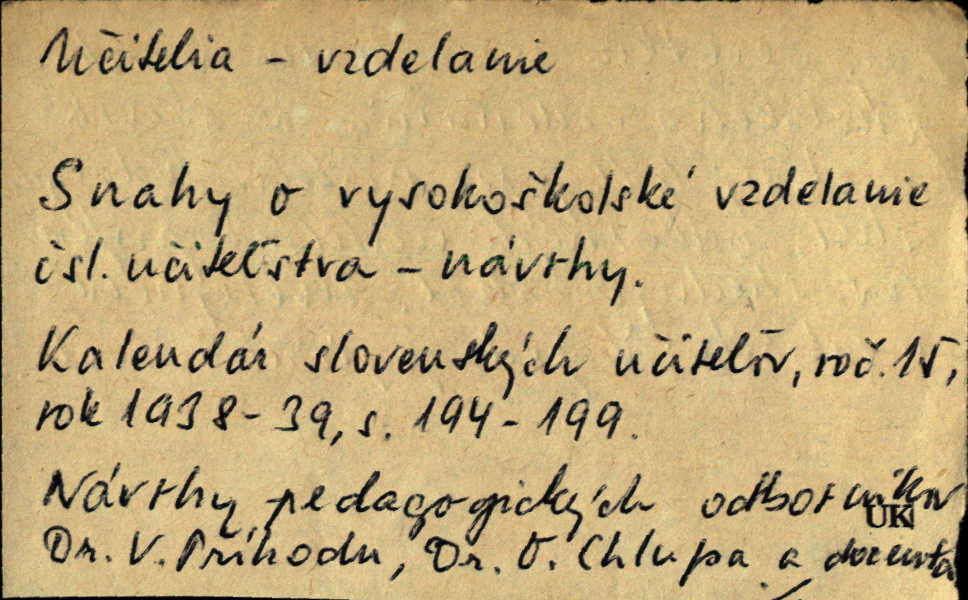 Učitelia - vzdelanie
Snahy o vysokoškolské vzdelanie
čsl. učiteľstva - návrhy.
Kalendár slovenských učiteľov, roč. 15,
rok 1938-39, s. 194-199.
Návrhy pedagogických odborníkov
UK
Dr. V. Príhodu, Dr. O. Chlupa a docenta